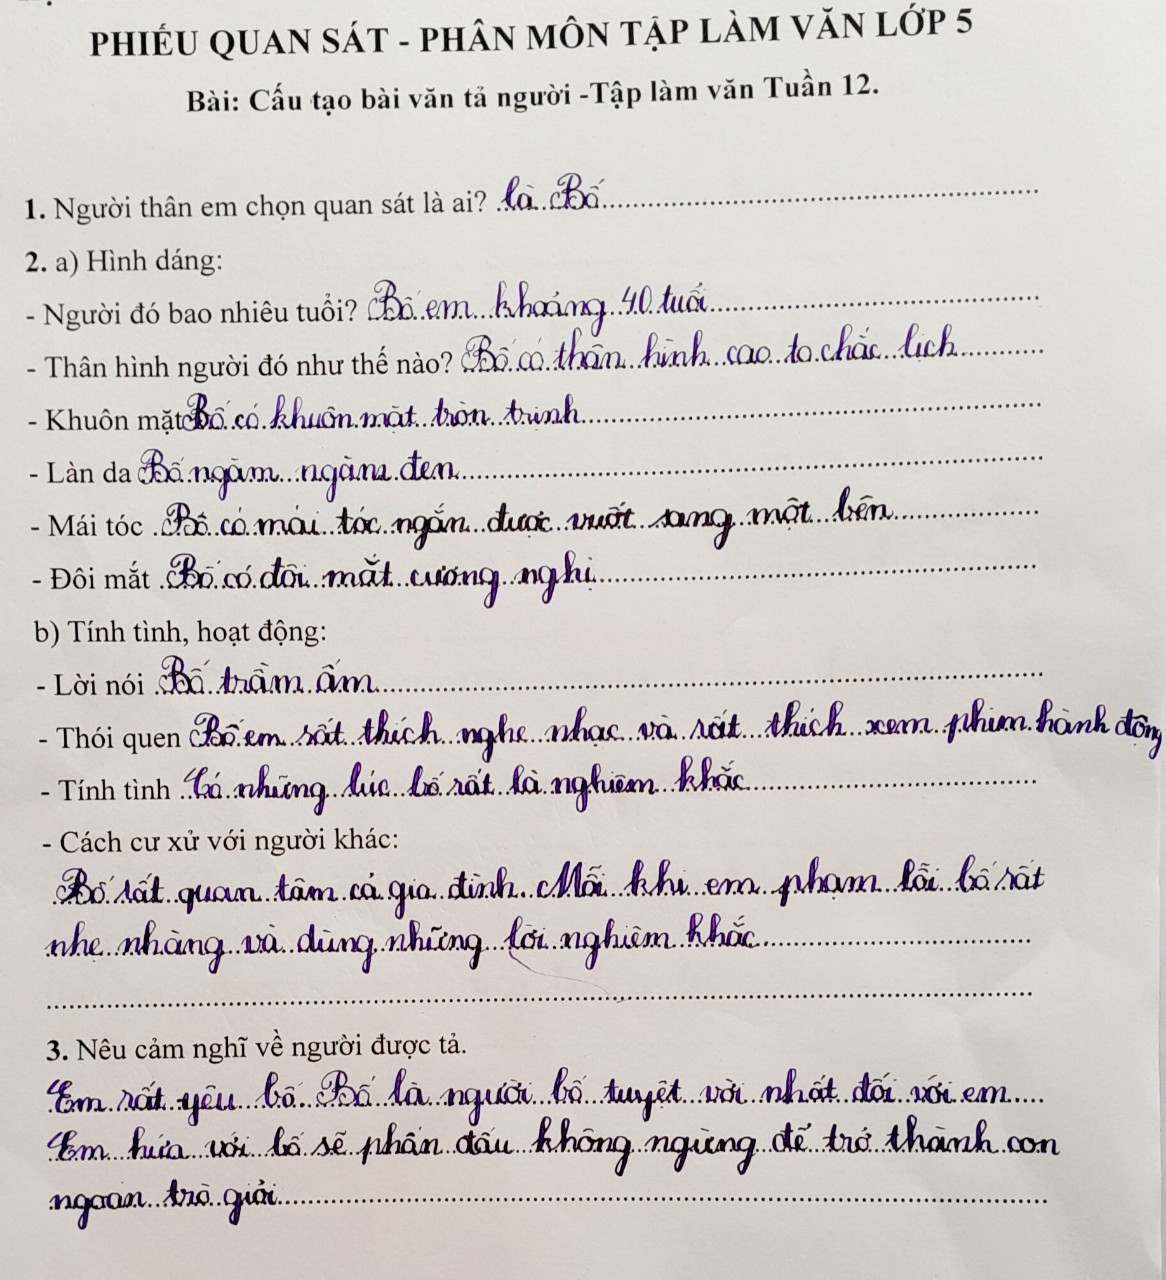 PHIẾU QUAN SÁT - PHÂN MÔN TẬP LÀM VĂN LỚP 5
Bài: Cấu tạo bài văn tả người -Tập làm văn Tuần 12.
1. Người thân em chọn quan sát là ai? là Bố
2. a) Hình dáng:
- Người đó bao nhiêu tuổi? Bố em khoảng 40 tuổi
- Thân hình người đó như thế nào? Bố có thân hình cao to chắc lịch
- Khuôn mặt Bố có khuôn mặt tròn trịnh
- Làn da Bố ngăm ngăm đen
- Mái tóc Bố có mái tóc ngắn được vuốt sang một bên
- Đôi mắt Bố có đôi mắt cương nghị
b) Tính tình, hoạt động:
- Lời nói Bố trầm ấm
- Thói quen Bố em rất thích nghe nhạc và rất thích xem phim hành động
- Tính tình Có những lúc bố rất là nghiêm khắc
- Cách cư xử với người khác:
Bố rất quan tâm cả gia đình. Mỗi khi em phạm lỗi bố rất
nhẹ nhàng và dùng những lời nghiêm khắc
3. Nêu cảm nghĩ về người được tả.
Em rất yêu bố. Bố là người bố tuyệt vời nhất đối với em
Em hứa với bố sẽ phấn đấu không ngừng để trở thành con
ngoan trò giỏi